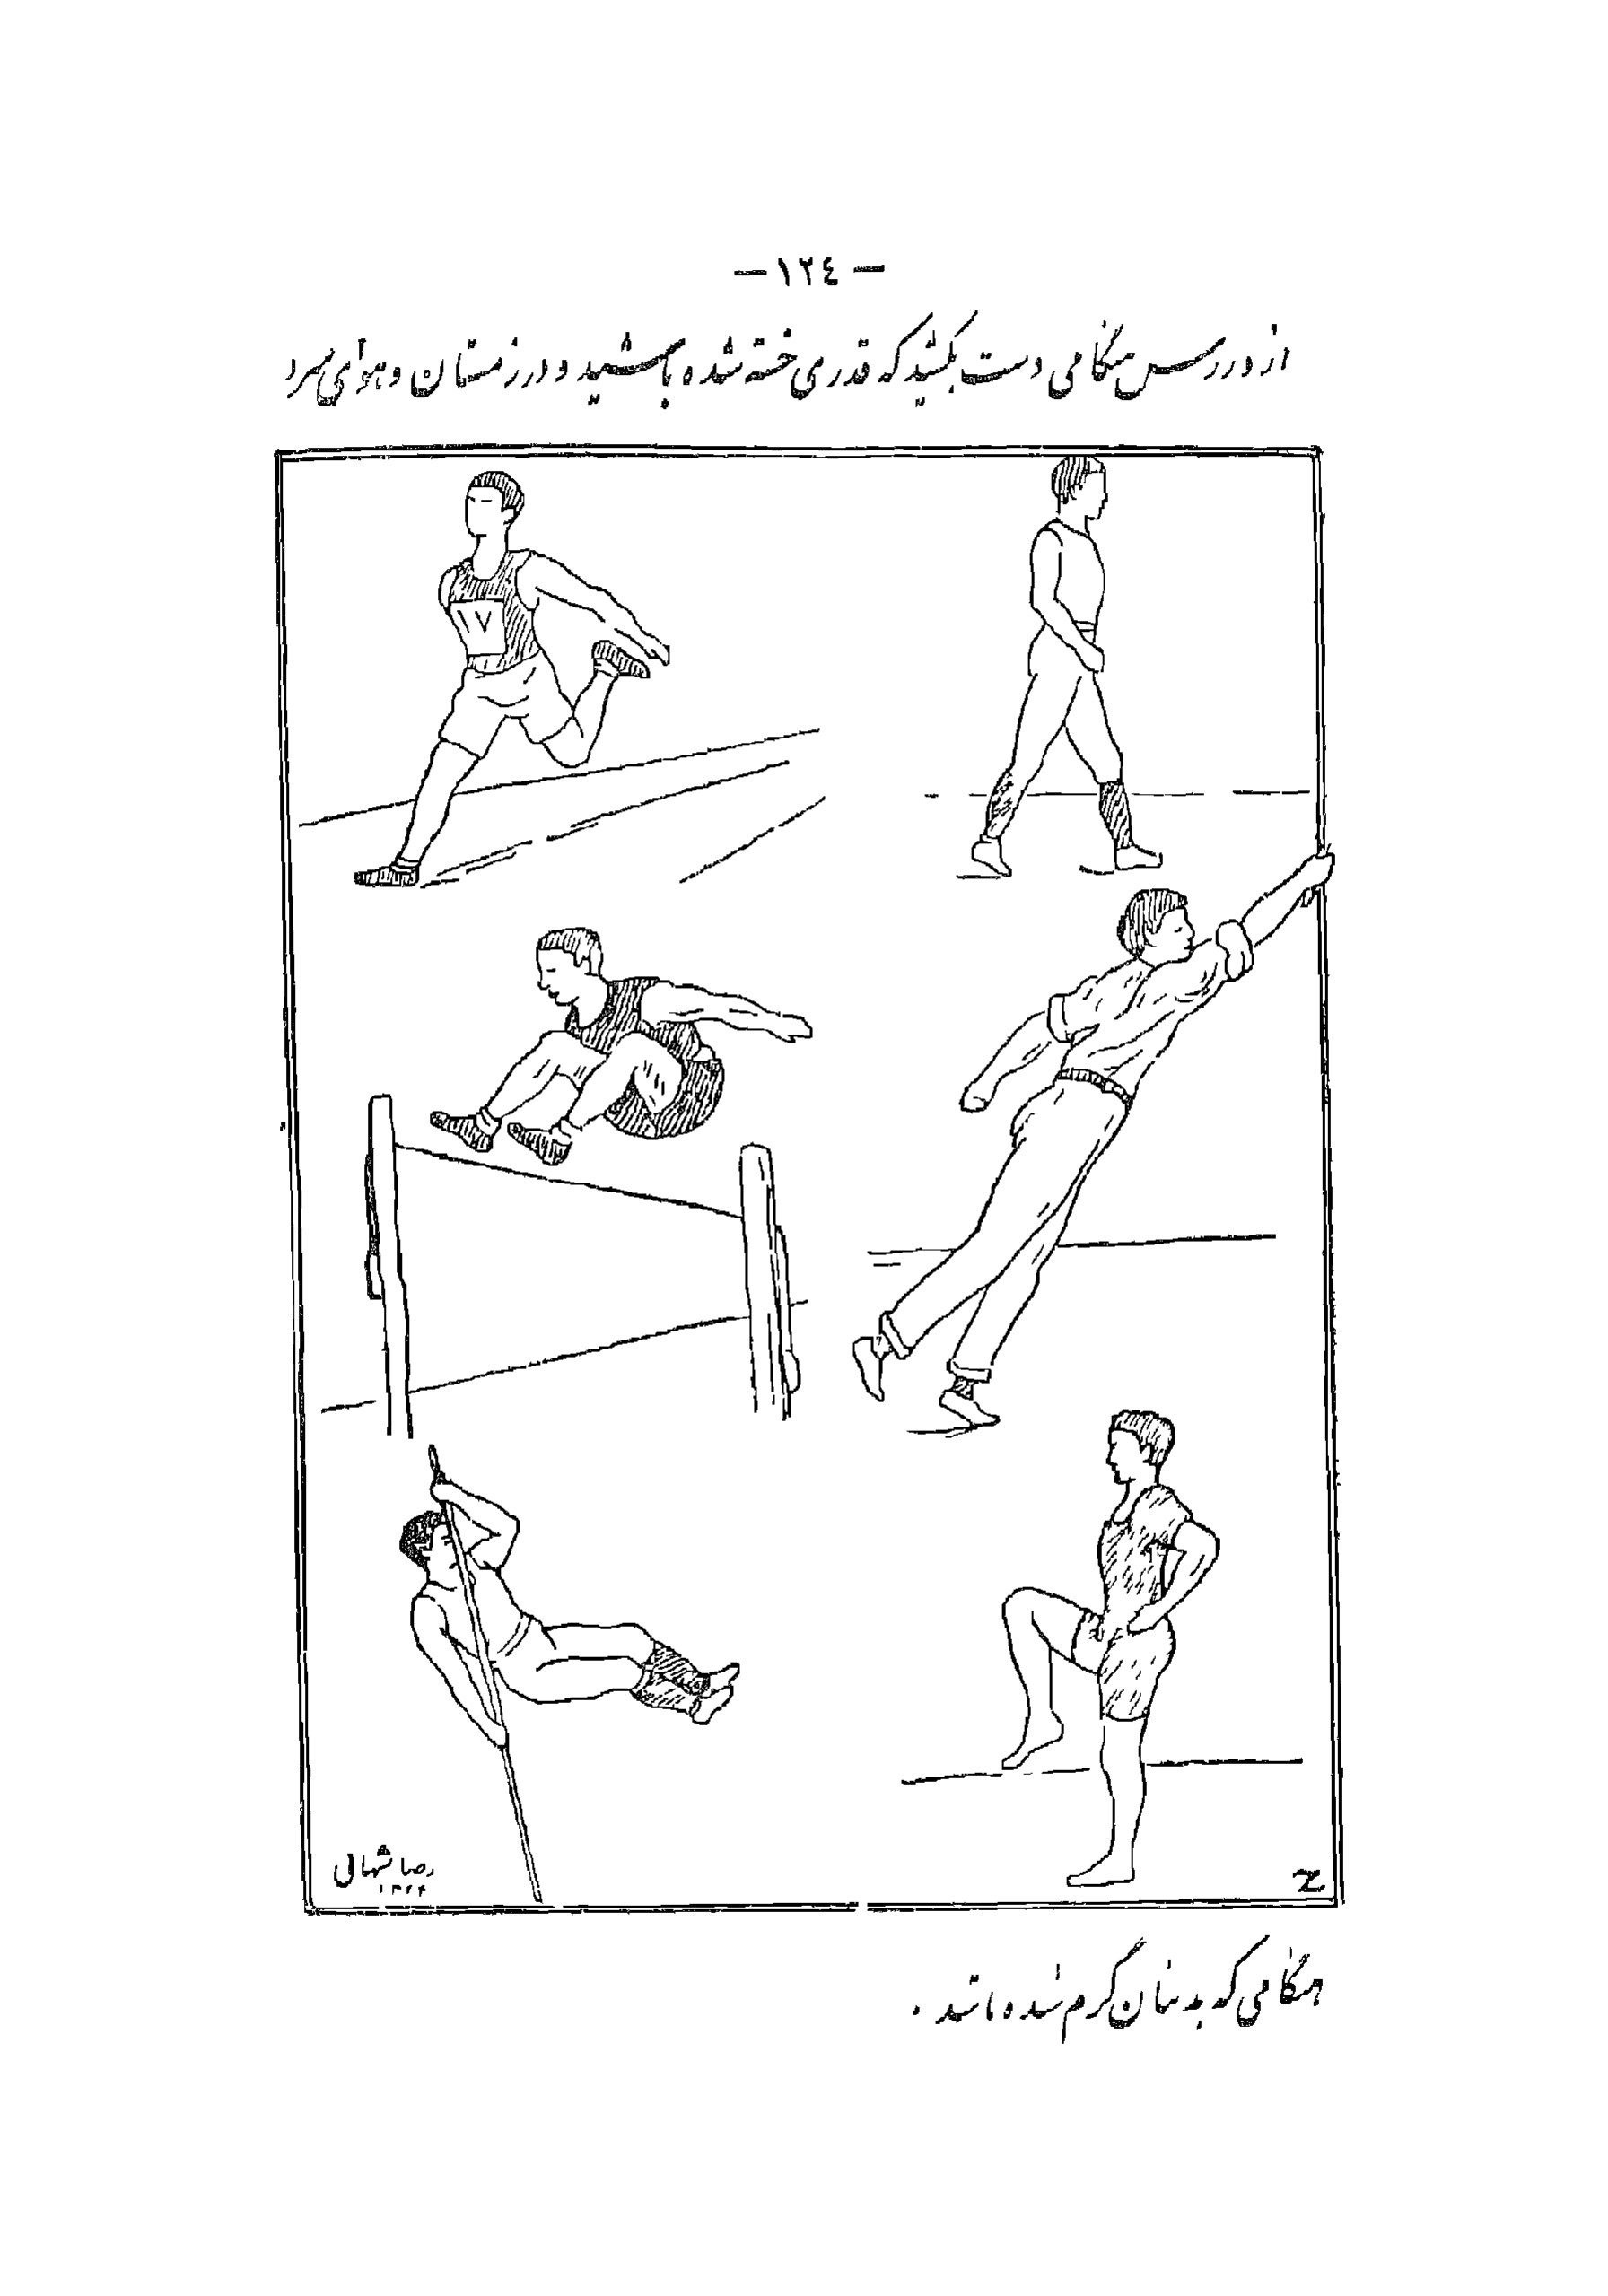 — ١٢٤ —
از ورزش هنگامی دست بکشید که قدری خسته شده باشید و در زمستان و هوای سرد
١٧
رضا شهابی
هنگامی که بدنتان گرم شده باشد .